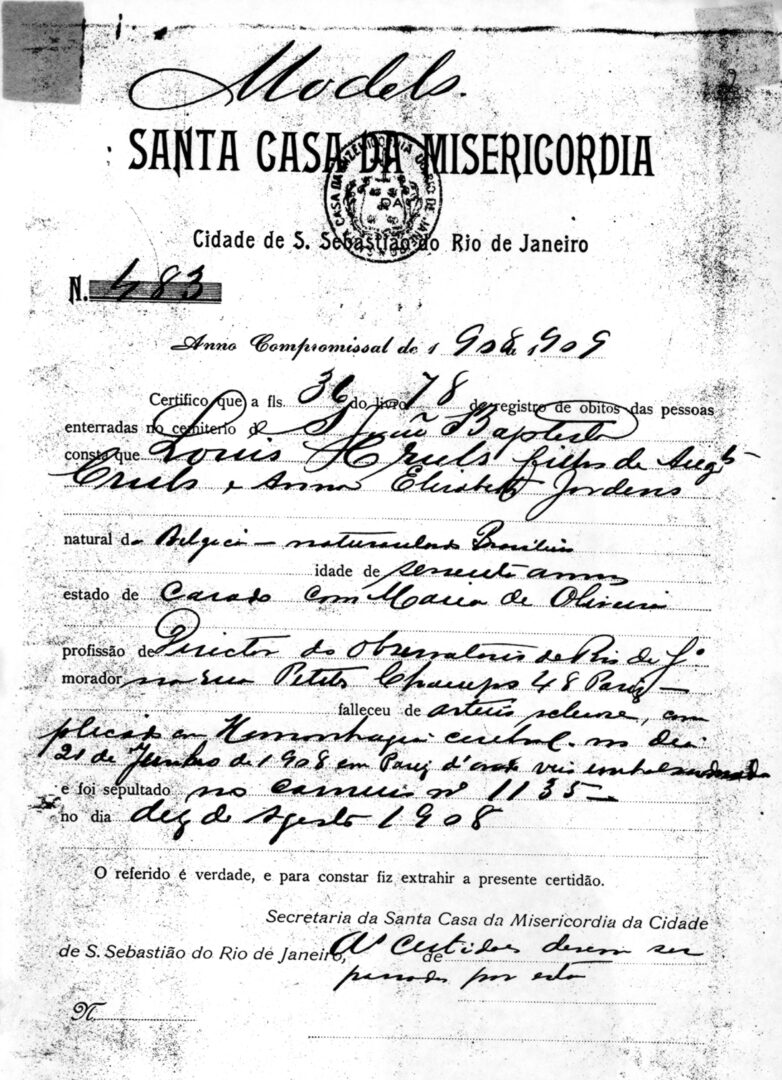 Models.
SANTA CASA DA MISERICORDIA
Cidade de S. Sebastião do Rio de Janeiro
N. 483
Anno Compromissal de 1908 a 1909
Certifico que a fls. 36 do livro 78 de registro de obitos das pessoas
enterradas no cemiterio de S João Baptista
consta que Louis Cruls filho de Augto
Cruls e Anna Elisabeth Jordens
natural da Belgica – naturalisado Brasileiro
idade de sessenta annos
estado de Casado com Maria de Oliveira
profissão de Director do Observatorio do Rio de Jº
morador na rua Petits Champs 48 Pariz –
falleceu de arterio sclerose, com
plicada em Hemorrhagia cerebral no dia
21 de Junho de 1908 em Pariz d'onde veio embalsamado
e foi sepultado no carneiro nº 1135 –
no dia dez de Agosto 1908
O referido é verdade, e para constar fiz extrahir a presente certidão.
Secretaria da Santa Casa da Misericordia da Cidade
de S. Sebastião do Rio de Janeiro, de As certidões devem ser
passadas por esta
N.